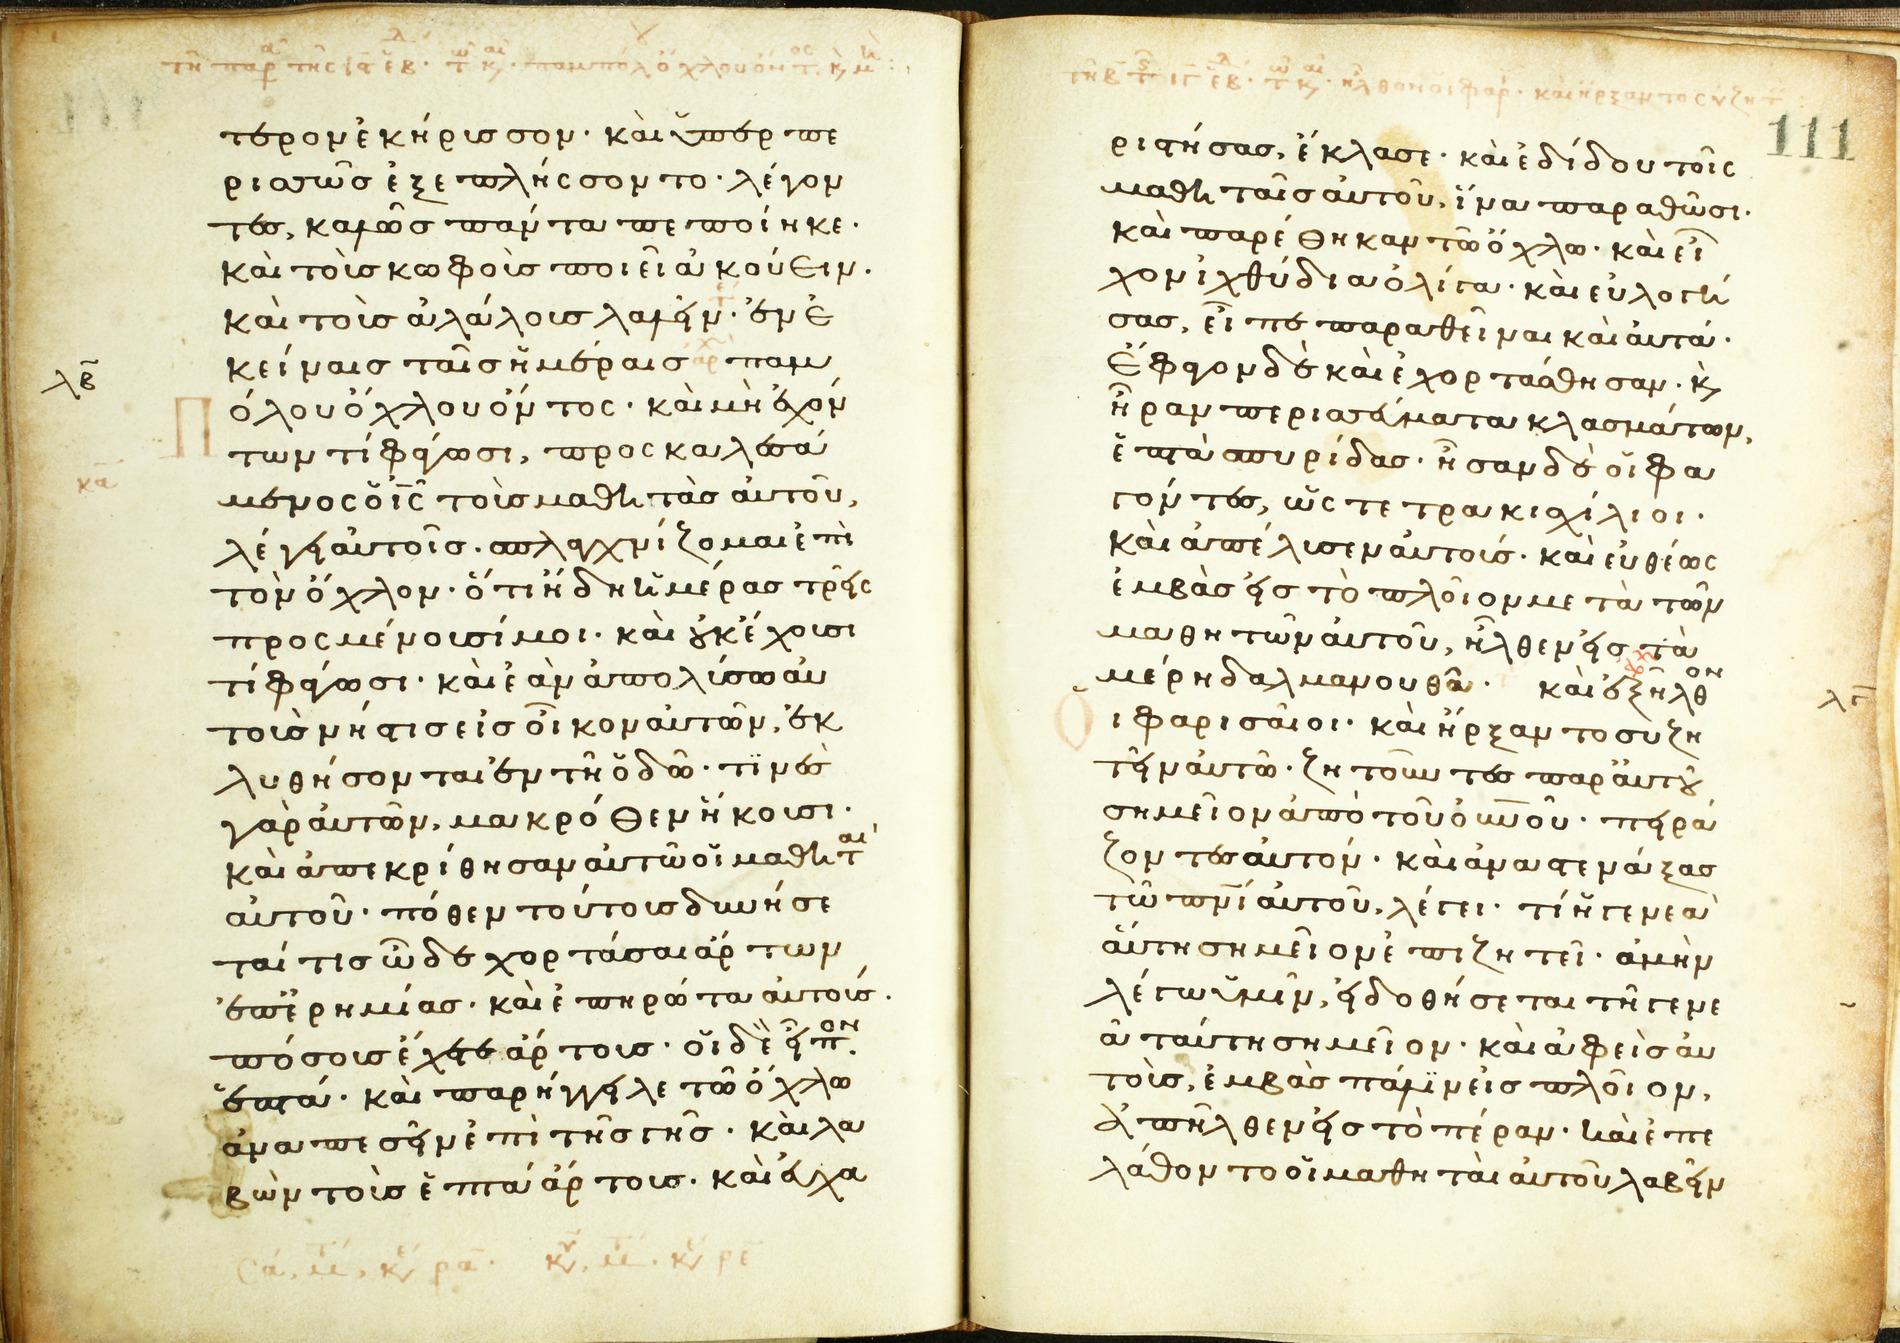 τερον ἐκήρισσον· καὶ ὑπερ πε
ρισσῶσ ἐξεπλήσσοντο· λέγον
τες, καλῶσ πάντα πεποίηκε·
καὶ τοὺσ κωφοὺσ ποιεῖ ἀκούειν·
καὶ τοὺσ ἀλάλουσ λαλεῖν· ἐν ἐ
κείναισ ταῖσ ἡμέραισ παμ
λβ
πόλου ὄχλου ὄντοσ· καὶ μὴ ἐχόν
των τί φάγωσι, προσκαλεσά
κα
μενοσ ὁ ις τοὺσ μαθητὰσ αὐτοῦ,
λέγει αὐτοῖσ· σπλαγχνίζομαι ἐπὶ
τὸν ὄχλον· ὅτι ἤδη ἡμέρασ τρεῖς
προσμένουσί μοι· καὶ οὐκ ἔχουσι
τί φάγωσι· καὶ ἐὰν ἀπολύσω αὐ
τοὺσ νήστισ εἰσ οἶκον αὐτῶν, ἐκ
λυθήσονται ἐν τῆ ὁδῶ· τινὲσ
γὰρ αὐτῶν, μακρόθεν ἥκουσι·
καὶ ἀπεκρίθησαν αὐτῶ οἱ μαθηταὶ
αὐτοῦ· πόθεν τούτουσ δυνήσε
ταί τισ ὧδε χορτάσαι ἄρτων
ἐπ ἐρημίασ· καὶ ἐπηρώτα αὐτούσ·
πόσουσ ἔχετε ἄρτουσ· οἱ δὲ εἶπον·
ἑπτά· καὶ παρήγγειλε τῶ ὄχλω
ἀναπεσεῖν ἐπὶ τῆσ γῆσ· καὶ λα
βὼν τοὺσ ἑπτὰ ἄρτουσ· καὶ εὐχα
111
ριστήσασ, ἔκλασε· καὶ ἐδίδου τοῖς
μαθηταῖσ αὐτοῦ, ἵνα παραθῶσι·
καὶ παρέθηκαν τῶ ὄχλω· καὶ εἶ
χον ἰχθύδια ὀλίγα· καὶ εὐλογή
σασ, εἶπε παραθεῖναι καὶ αὐτά·
ἔφαγον δὲ καὶ ἐχορτάσθησαν· καὶ
ἦραν περισσεύματα κλασμάτων,
ἑπτὰ σπυρίδασ· ἦσαν δὲ οἱ φα
γόντεσ, ὡς τετρακισχίλιοι·
καὶ ἀπέλυσεν αὐτούσ· καὶ εὐθέως
ἐμβὰσ εἰσ τὸ πλοῖον μετὰ τῶν
μαθητῶν αὐτοῦ, ἦλθεν εἰσ τὰ
μέρη δαλμανουθά· καὶ ἐξῆλθον
οἱ φαρισαῖοι· καὶ ἤρξαντο συζη
τεῖν αὐτῶ· ζητοῦντεσ παρ αὐτοῦ
σημεῖον ἀπὸ τοῦ οὐνοῦ· πειρά
ζοντεσ αὐτόν· καὶ ἀναστενάξασ
τῶ πνι αὐτοῦ, λέγει· τί ἡ γενεὰ
αὕτη σημεῖον ἐπιζητεῖ· ἀμὴν
λέγω ὑμῖν, εἰ δοθήσεται τῆ γενε
ᾶ ταύτη σημεῖον· καὶ ἀφεὶσ αὐ
τοὺσ, ἐμβὰσ πάλιν εἰσ πλοῖον,
ἀπῆλθεν εἰσ τὸ πέραν· καὶ ἐπε
λάθοντο οἱ μαθηταὶ αὐτοῦ λαβεῖν